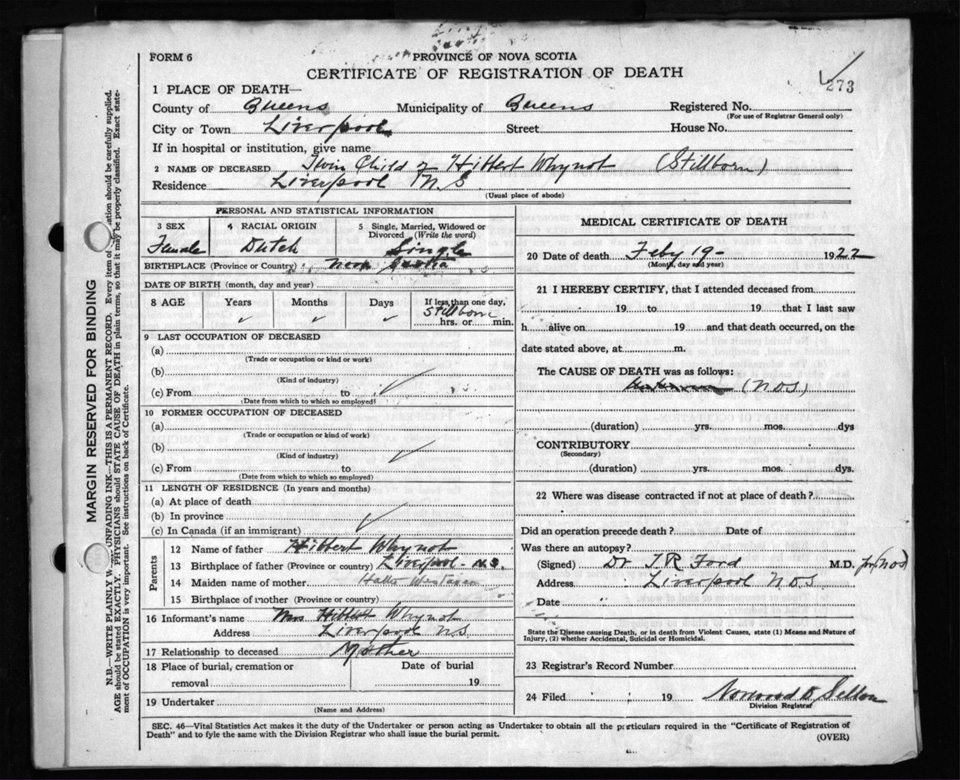 FORM 6
PROVINCE OF NOVA SCOTIA
CERTIFICATE OF REGISTRATION OF DEATH
273
1 PLACE OF DEATH—
County of Queens Municipality of Queens Registered No.
(For use of Registrar General only)
City or Town Liverpool Street House No.
If in hospital or institution, give name
2 NAME OF DECEASED Twin Child of Hibbert Whynot (Stillborn)
Residence Liverpool N.S.
(Usual place of abode)
PERSONAL AND STATISTICAL INFORMATION
3 SEX 4 RACIAL ORIGIN 5 Single, Married, Widowed or Divorced (Write the word)
Female Dutch Single
BIRTHPLACE (Province or Country) Nova Scotia
DATE OF BIRTH (month, day and year)
8 AGE Years Months Days If less than one day,
Stillborn
hrs. or min.
9 LAST OCCUPATION OF DECEASED
(a)
(Trade or occupation or kind or work)
(b)
(Kind of industry)
(c) From to
(Date from which to which so employed)
10 FORMER OCCUPATION OF DECEASED
(a)
(Trade or occupation or kind of work)
(b)
(Kind of industry)
(c) From to
(Date from which to which so employed)
11 LENGTH OF RESIDENCE (In years and months)
(a) At place of death
(b) In province
(c) In Canada (if an immigrant)
Parents
12 Name of father Hibbert Whynot
13 Birthplace of father (Province or country) Liverpool N.S.
14 Maiden name of mother
15 Birthplace of mother (Province or Country)
16 Informant's name Mrs Hibbert Whynot
Address Liverpool N.S.
17 Relationship to deceased Mother
18 Place of burial, cremation or removal Date of burial 19
19 Undertaker
(Name and Address)
MEDICAL CERTIFICATE OF DEATH
20 Date of death Feby 19- 1922
(Month, day and year)
21 I HEREBY CERTIFY, that I attended deceased from
19 to 19 that I last saw
h alive on 19 and that death occurred, on the
date stated above, at m.
The CAUSE OF DEATH was as follows:
(N.O.S)
(duration) yrs. mos. dys
CONTRIBUTORY
(Secondary)
(duration) yrs. mos. dys.
22 Where was disease contracted if not at place of death?
Did an operation precede death? Date of
Was there an autopsy?
(Signed) Dr J.R Ford M.D.
Address Liverpool N.S.
Date
State the Disease causing Death, or in death from Violent Causes, state (1) Means and Nature of
Injury, (2) whether Accidental, Suicidal or Homicidal.
23 Registrar's Record Number
24 Filed 19
Division Registrar
SEC. 46—Vital Statistics Act makes it the duty of the Undertaker or person acting as Undertaker to obtain all the particulars required in the "Certificate of Registration of
Death" and to fyle the same with the Division Registrar who shall issue the burial permit.
(OVER)
MARGIN RESERVED FOR BINDING